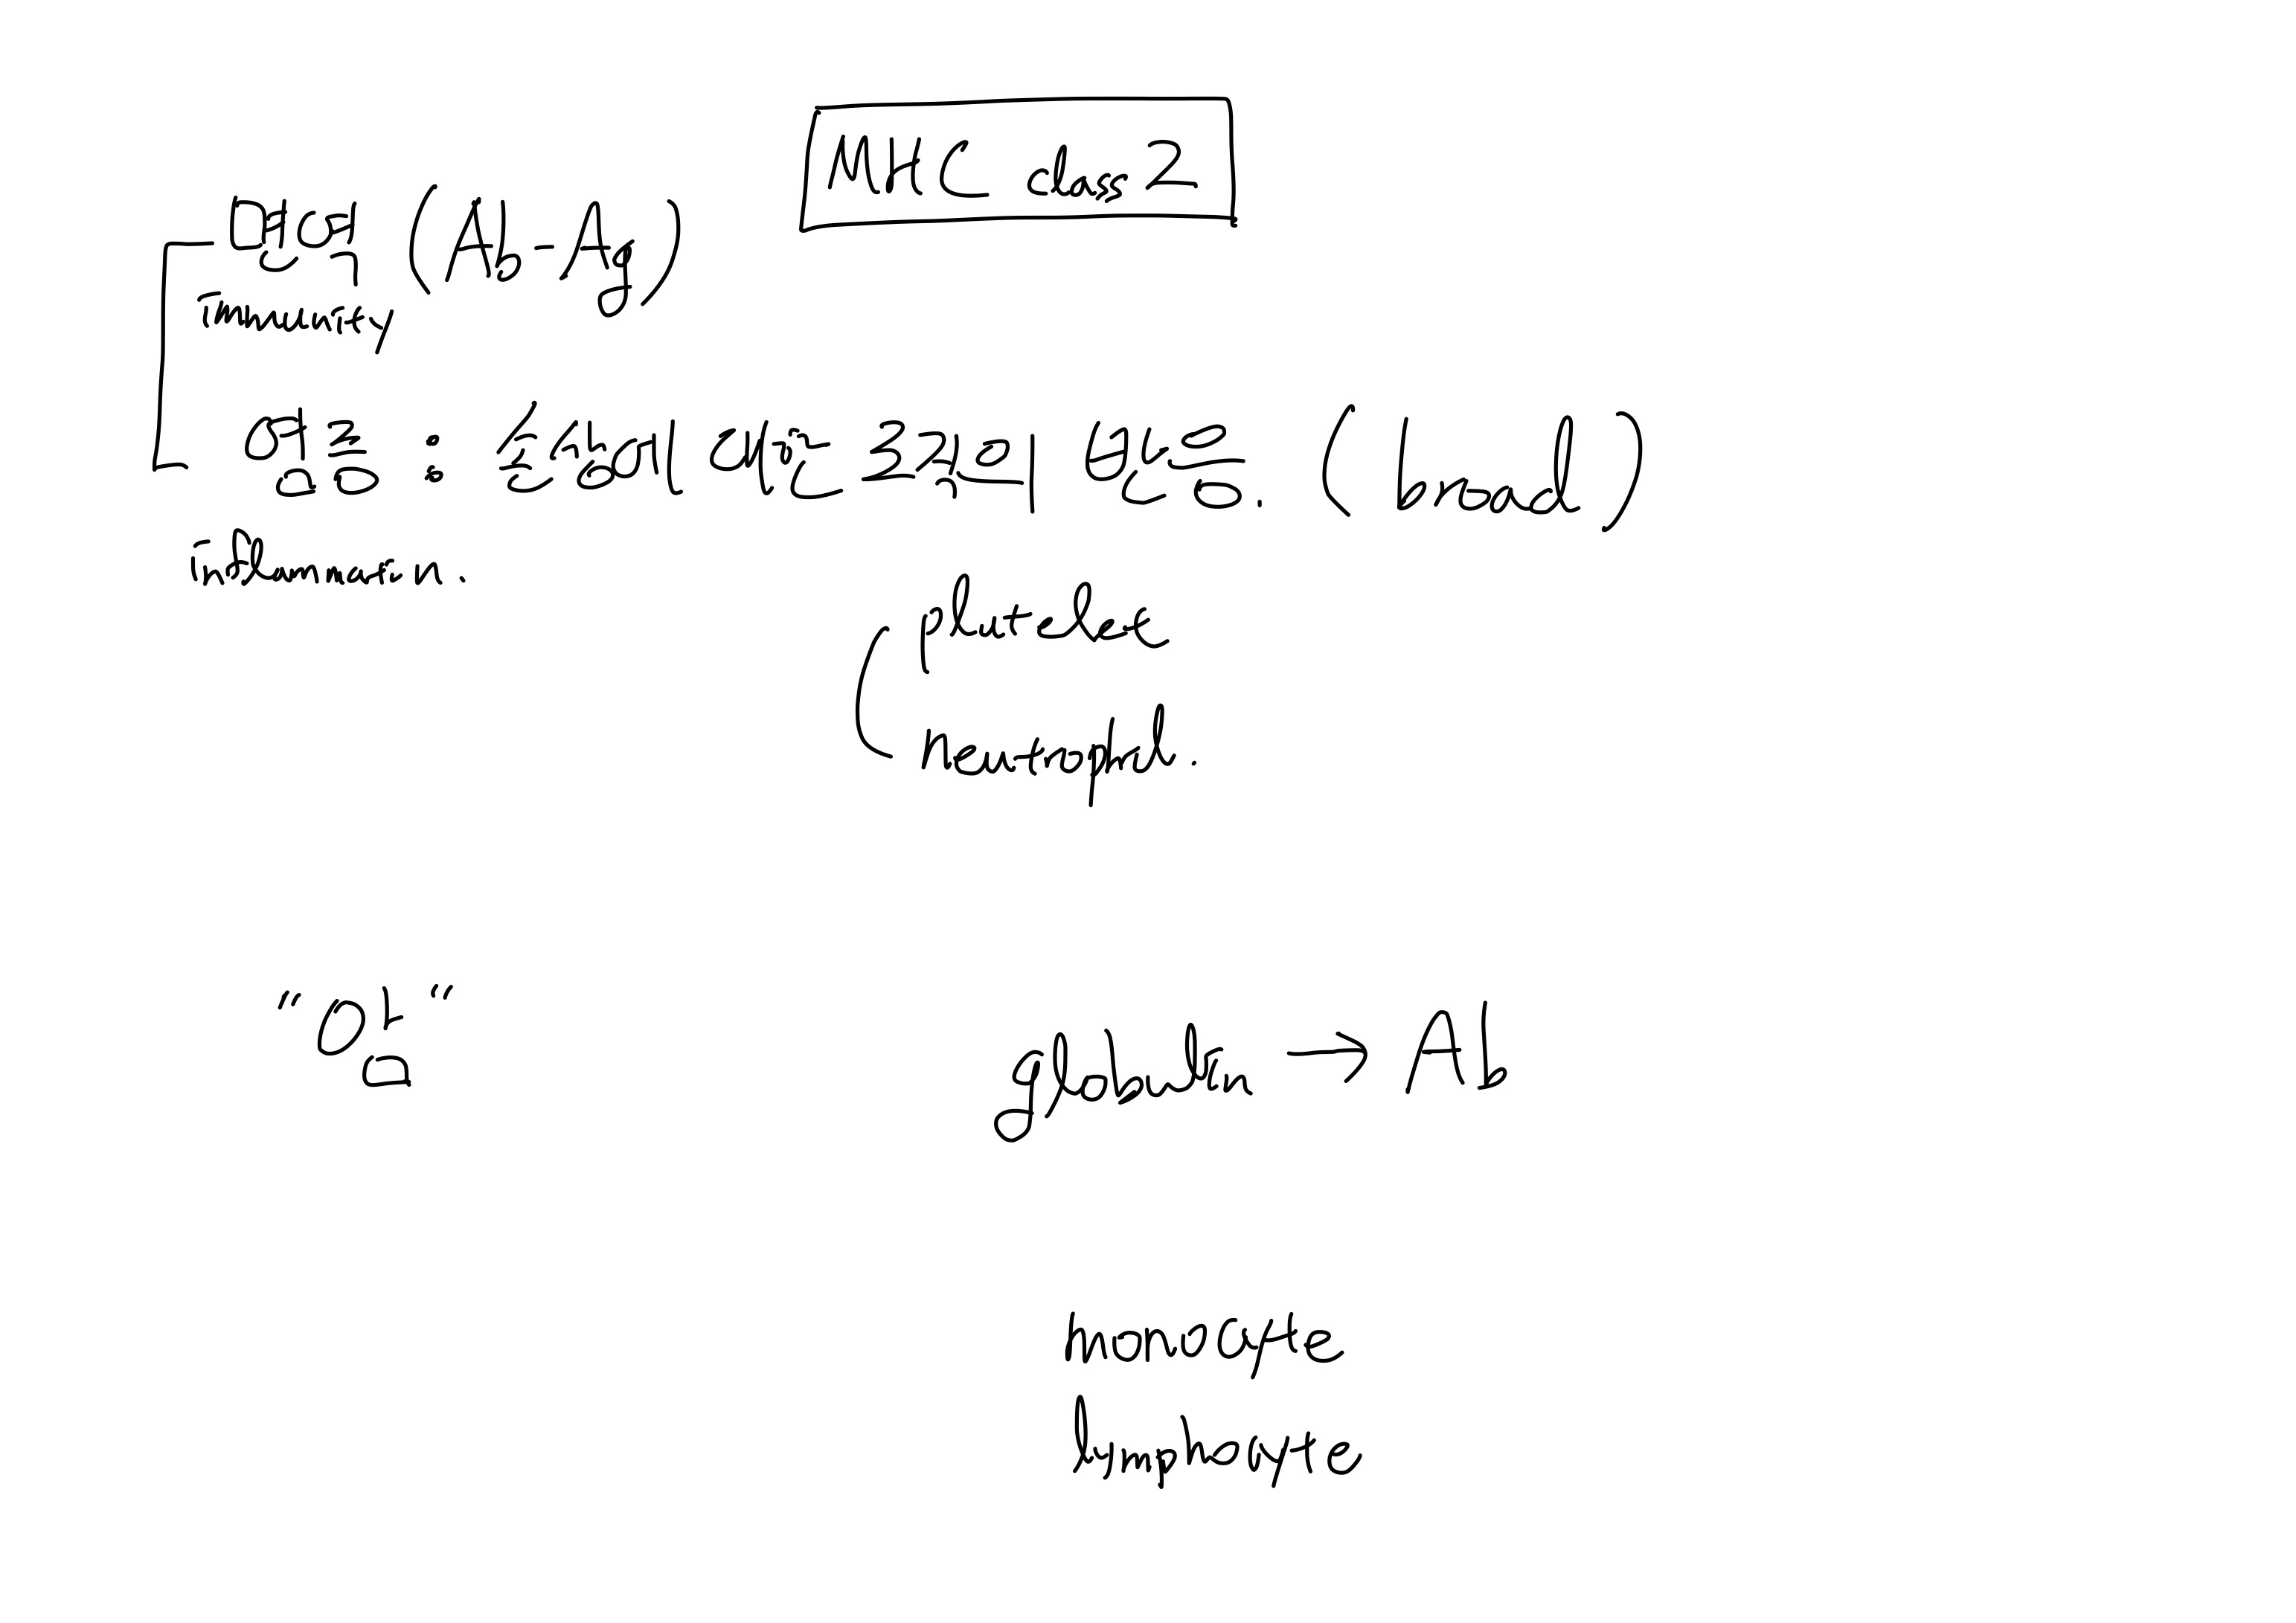 MHC class 2
면역 (Ab-Ag)
immunity
염증 : 손상에 대한 조직의 반응. (broad)
inflammation.
platelet
neutrophil.
"암"
globulin → Ab
monocyte
lymphocyte